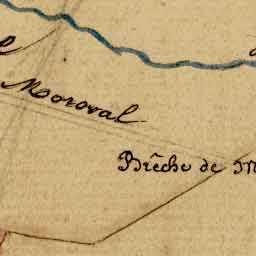 Moroval
Brêche de M